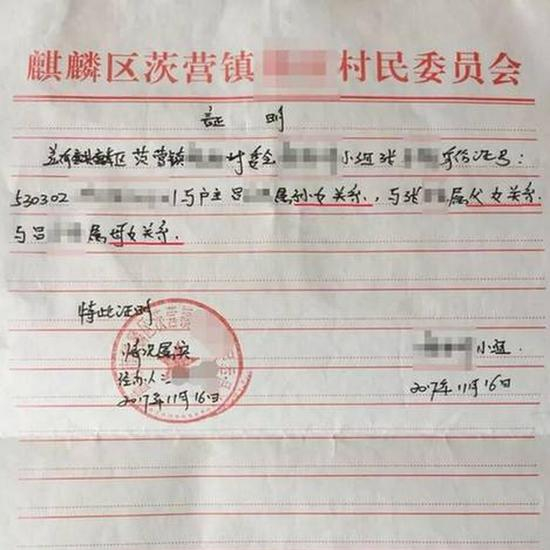 麒麟区茨营镇 村民委员会
证 明
兹有麒麟区茨营镇 村委会 小组张 身份证号:
530302 1与户主吕 属孙女关系,与张 属父女关系.
与吕 属母女关系.
特此证明
情况属实
小组
经办人:
2017年11月16日
2017年11月16日
麒麟区茨营镇